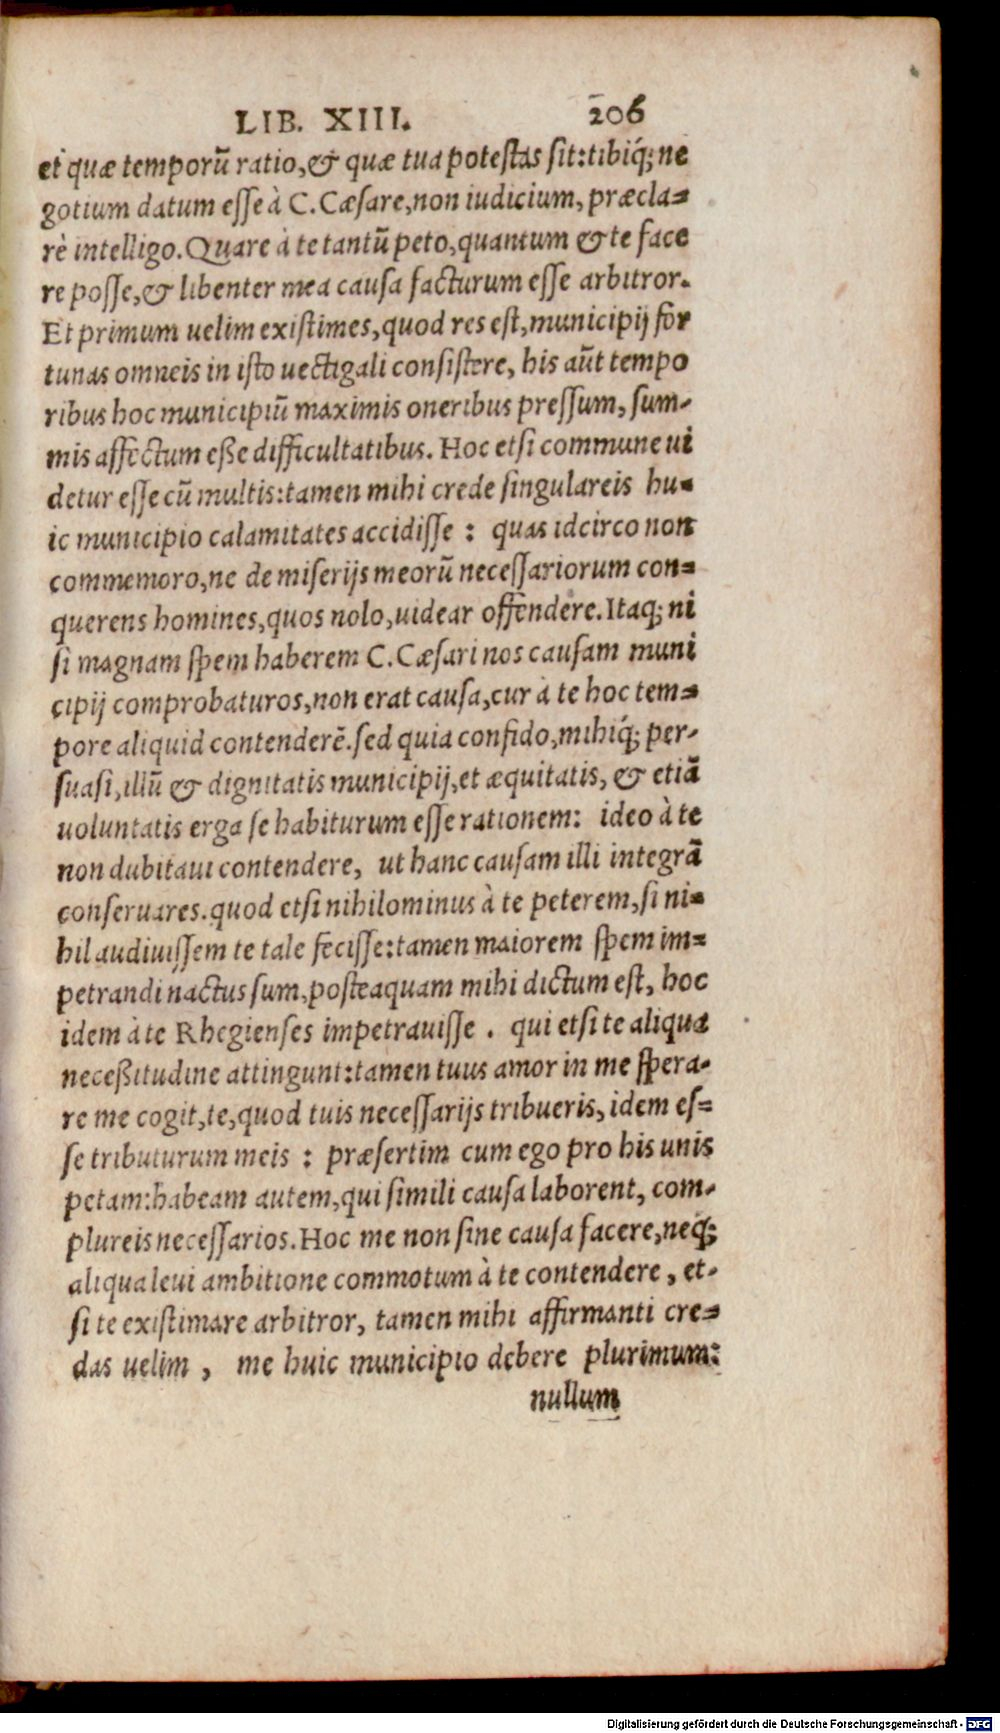 LIB. XIII. 206
et quæ temporũ ratio, & quæ tua potestas sit: tibiq́; ne
gotium datum esse à C. Cæsare, non iudicium, præcla-
rè intelligo. Quare à te tantũ peto, quantum & te face
re posse, & libenter mea causa facturum esse arbitror.
Et primum uelim existimes, quod res est, municipij for
tunas omneis in isto uectigali consistere, his aũt tempo
ribus hoc municipiũ maximis oneribus pressum, sum-
mis affectum eße difficultatibus. Hoc etsi commune ui
detur esse cũ multis: tamen mihi crede singulareis hu-
ic municipio calamitates accidisse : quas idcirco non
commemoro, ne de miserijs meorũ necessariorum con-
querens homines, quos nolo, uidear offendere. Itaq; ni
si magnam spem haberem C. Cæsari nos causam muni
cipij comprobaturos, non erat causa, cur à te hoc tem-
pore aliquid contenderẽ. sed quia confido, mihiq́; per-
suasi, illũ & dignitatis municipij, et æquitatis, & etiã
uoluntatis erga se habiturum esse rationem: ideo à te
non dubitaui contendere, ut hanc causam illi integrã
conseruares. quod etsi nihilominus à te peterem, si ni-
hil audiuissem te tale fecisse: tamen maiorem spem im-
petrandi nactus sum, posteaquam mihi dictum est, hoc
idem à te Rhegienses impetrauisse . qui etsi te aliqua
neceßitudine attingunt: tamen tuus amor in me spera-
re me cogit, te, quod tuis necessarijs tribueris, idem es-
se tributurum meis : præsertim cum ego pro his unis
petam: habeam autem, qui simili causa laborent, com-
plureis necessarios. Hoc me non sine causa facere, neq́;
aliqua leui ambitione commotum à te contendere, et-
si te existimare arbitror, tamen mihi affirmanti cre-
das uelim , me huic municipio debere plurimum:
nullum
Digitalisierung gefördert durch die Deutsche Forschungsgemeinschaft - DFG